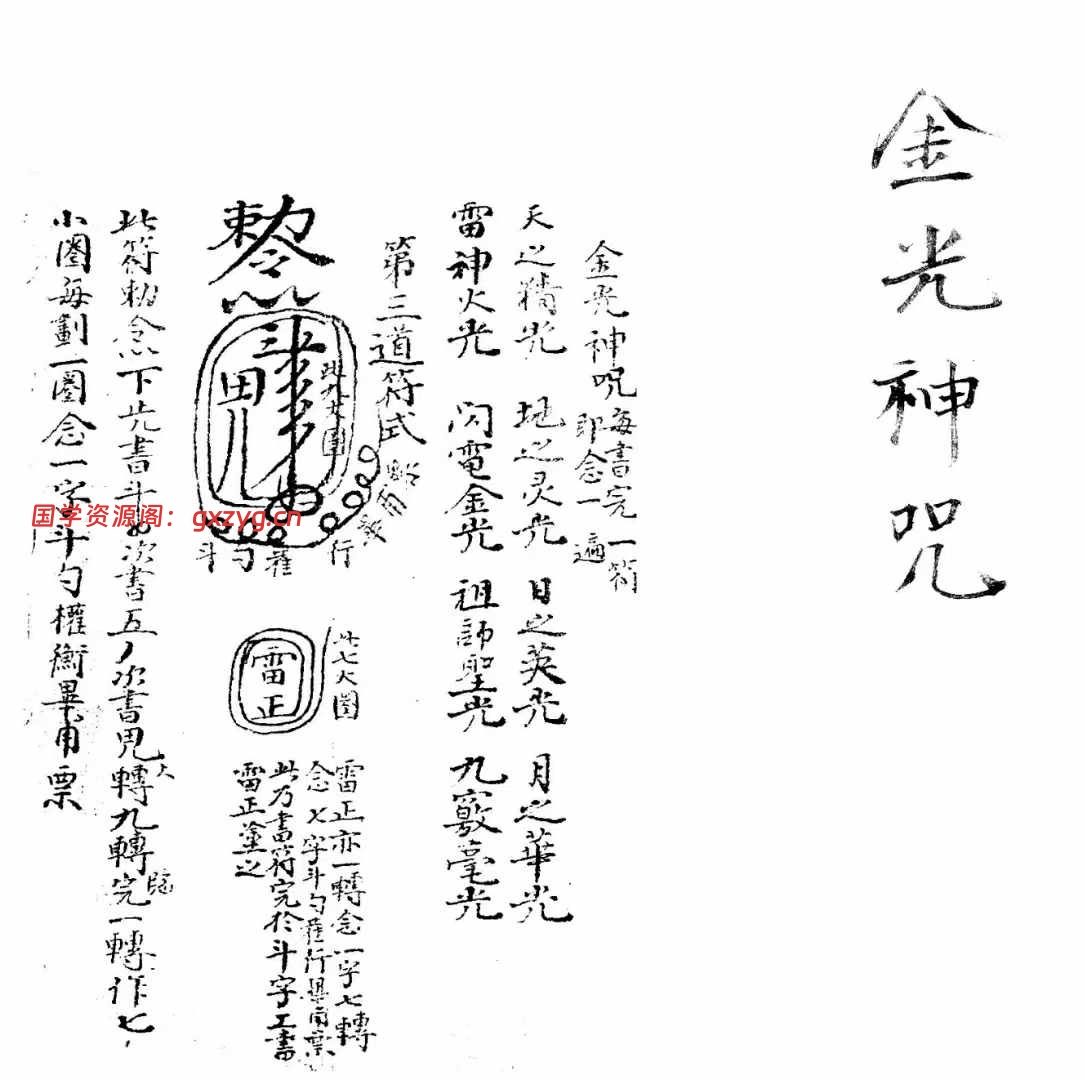 金光神咒
金光神咒 每書完一符
即念一遍
天之精光 地之灵光 日之英光 月之華光
雷神火光 闪電金光 祖師聖光 九竅毫光
第三道符式
勅令
此九大圈
田儿
斗勺雚行畢甪票
此七大圈
雷正
雷正亦一轉念一字七轉
念七字斗勺雚行畢甪票
此乃書符完於斗字工書
雷正塗之
此符勅念下先書斗 次書五 次書 轉九轉完一轉作七
大
臨
小圈每劃一圈念一字斗勺權衡畢甪票
国学资源阁：gxzyg.cn